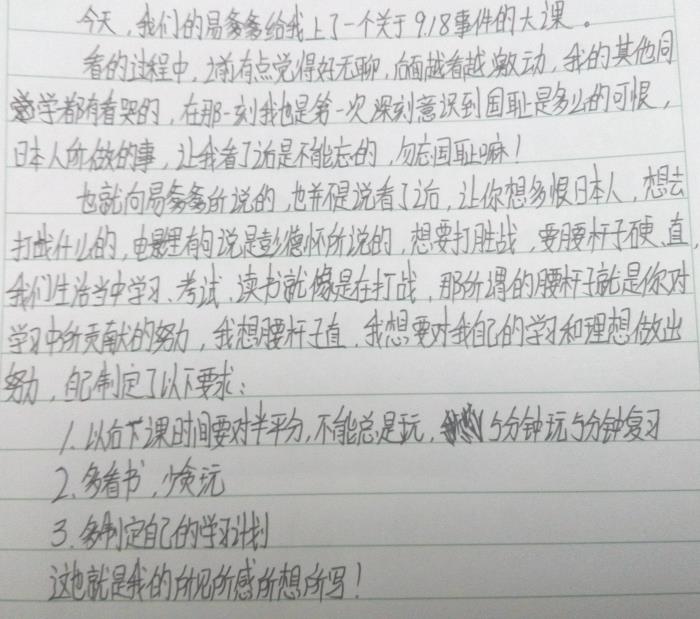 今天，我们的易爹爹给我上了一个关于9.18事件的大课。
看的过程中，之前有点觉得好无聊，后面越看越激动，我的其他同
学都有看哭的，在那一刻我也是第一次深刻意识到国耻是多么的可恨，
日本人所做的事，让我看了之后是不能忘的，勿忘国耻嘛！
也就向易爹爹所说的，也并不是说看了之后，让你想多恨日本人，想去
打战什么的，电影里有句说是彭德怀所说的，想要打胜战，要腰杆子硬、直，
我们生活当中学习、考试、读书就像是在打战，那所谓的腰杆子就是你对
学习中所贡献的努力，我想腰杆子直，我想要对我自己的学习和理想做出
努力，自己制定了以下要求：
1.以后下课时间要对半平分，不能总是玩，5分钟玩5分钟复习
2.多看书，少贪玩
3.多制定自己的学习计划
这也就是我的所见所感所想所写！